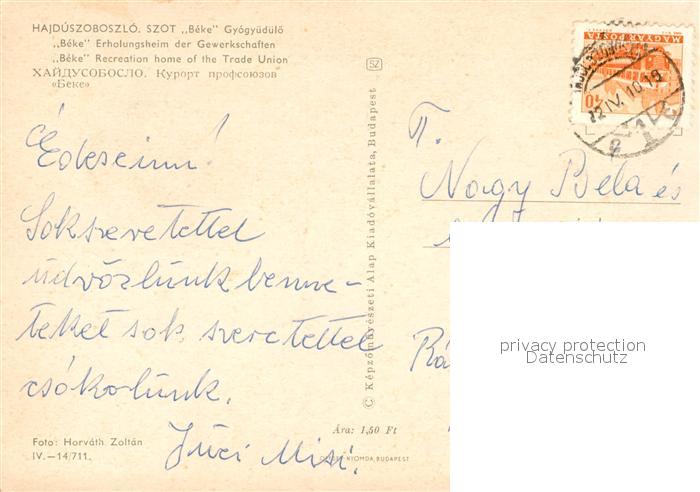 HAJDÚSZOBOSZLÓ. SZOT „Béke" Gyógyüdülő
„Béke" Erholungsheim der Gewerkschaften
„Béke" Recreation home of the Trade Union
ХАЙДУСОБОСЛО. Курорт профсоюзов
«Беке»
Édeseim!
Sokszeretettel
üdvözlünk benne-
teket sok szeretettel
csókolunk.
Juci Misi.
Foto: Horváth Zoltán
IV.—14/711.
SZ
© Képzőművészeti Alap Kiadóvállalata, Budapest
Ára: 1,50 Ft
NYOMDA, BUDAPEST
MAGYAR POSTA
40
IV. 10 19
T.
Nagy Béla és
Rá
privacy protection
Datenschutz